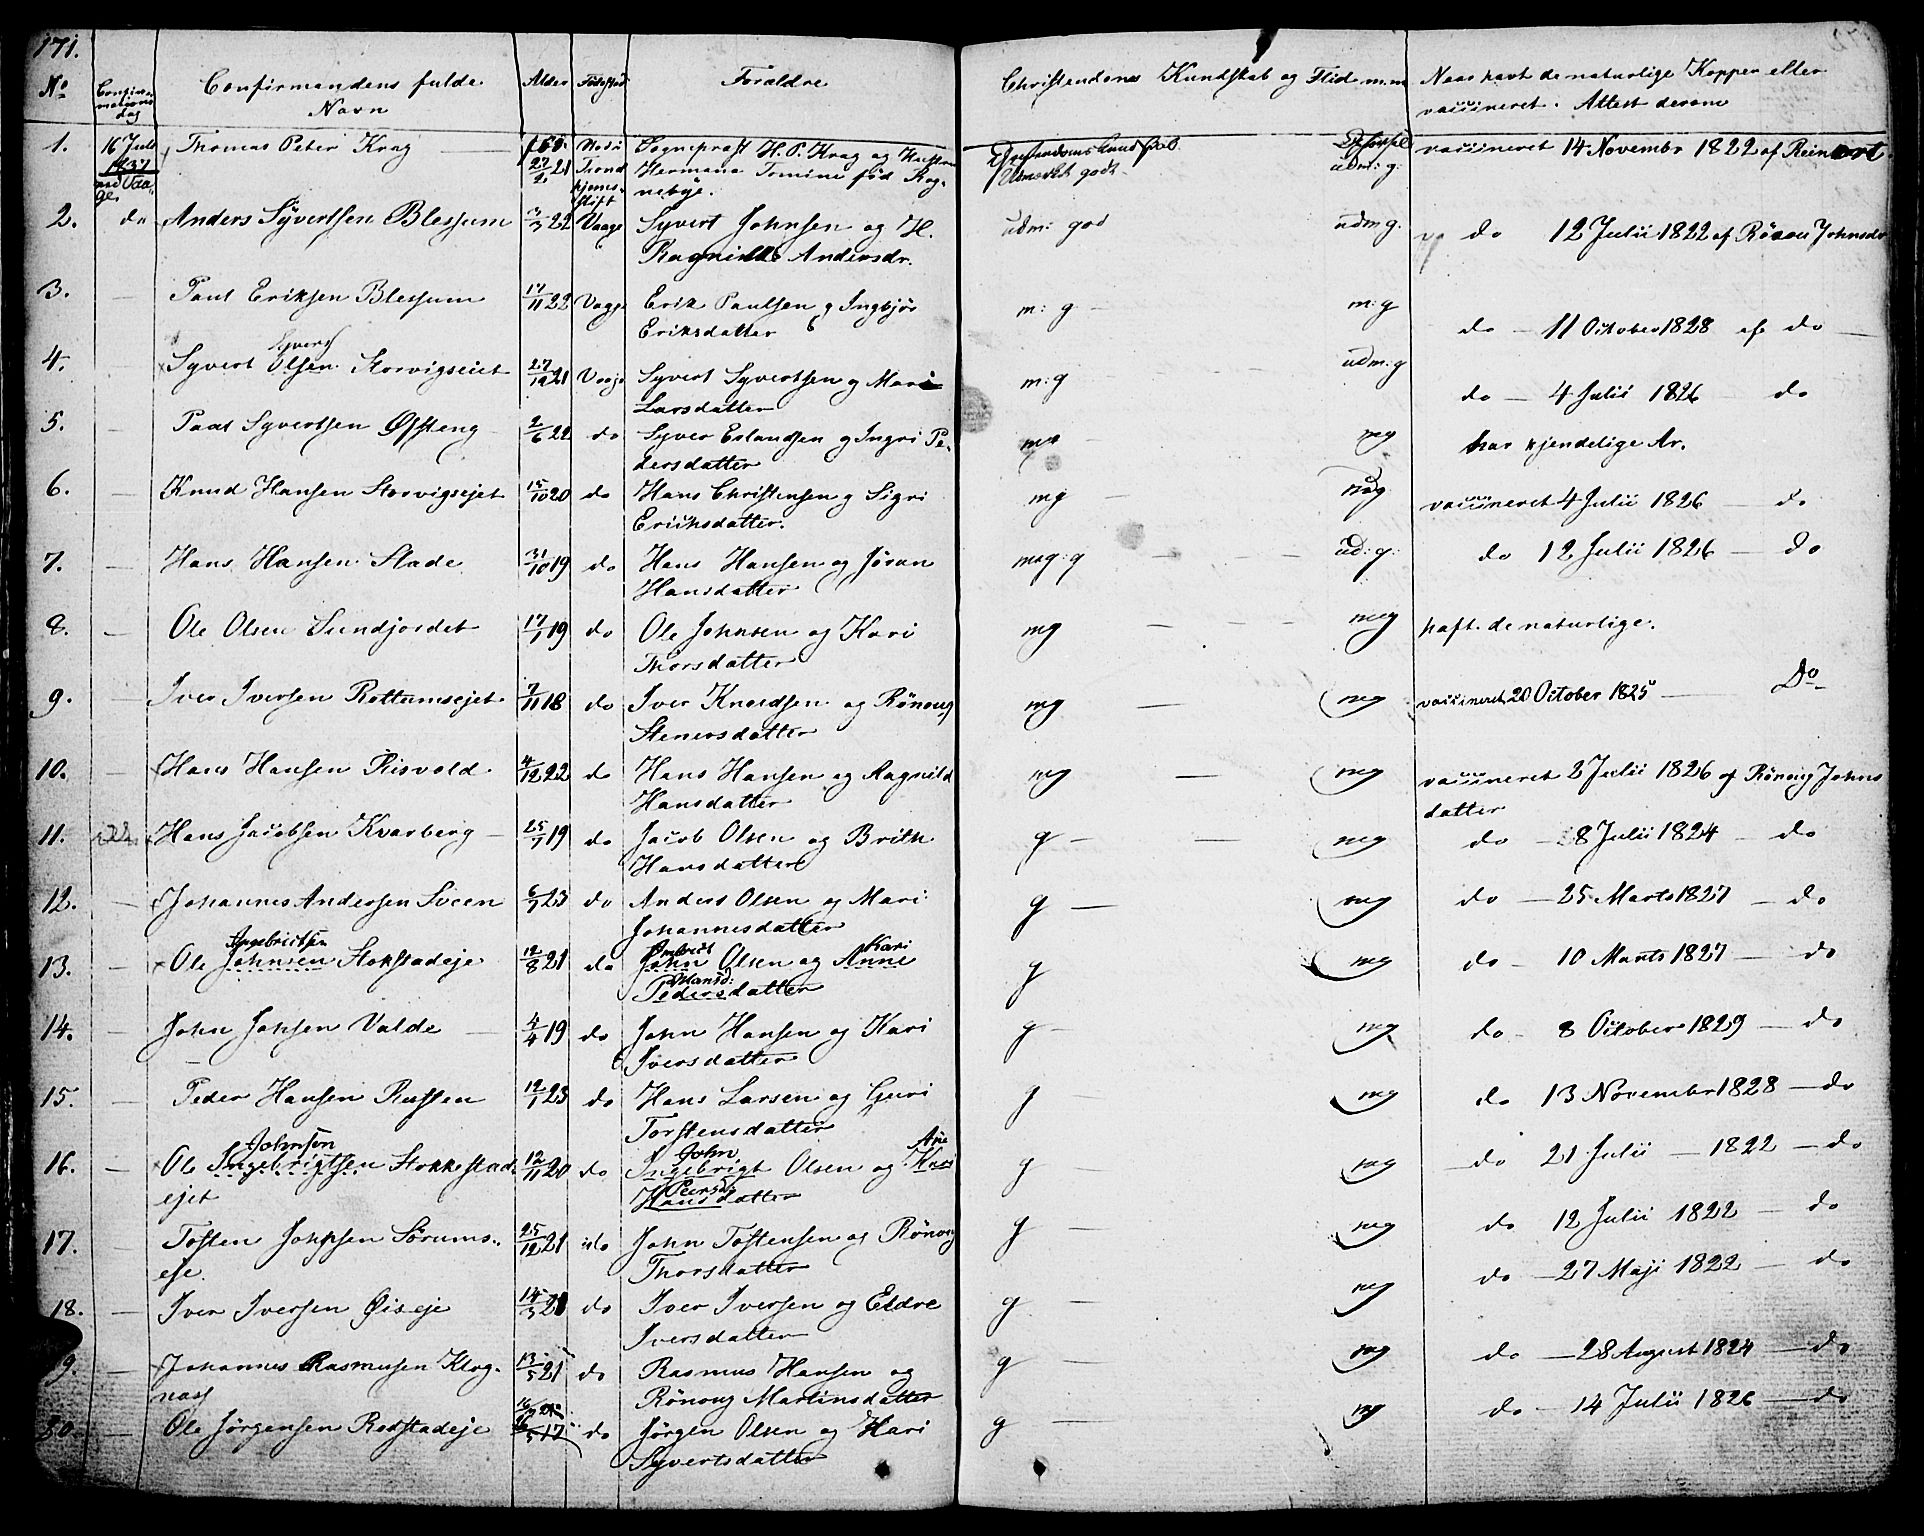 171.
No Confirmations dag Confirmandens fulde Navn Alder Fødested Forældre Christendoms Kundskab og Flid m.m Naar havt de naturlige Kopper eller vaccineret. Attest derom
1. 16 Juli 1837 ved Vaage. Thomas Peter Krag 27/2 21 Trondhjems stift Sogneprest H. P. Krag og Hustru Hermana Tomine fød Rognebye. Christendoms Kundskab Udmærket godt. udm: g. vaccineret 14 Novembr 1822 af
2. do Anders Syvertsen Blessum 3/3 22 Vaage Syvert Johnsen og H. Ragnild Andersdr. udm: god udm g. do 12 Julii 1822 af Rønou Johnsdr
3. — Paul Eriksen Blessum 17/11 22 Vaage Erik Paulsen og Ingbjør Eriksdatter m: g — m: g do — 11 October 1828 af do —
4. — Syvert Olsen Syvers Storvigseiet 27/10 21 Vaage Syvert Syvertsen og Mari Larsdatter m: g udm: g do — 4 Julii 1826 — do
5. — Paal Syvertsen Øfsteng 2/6 22 do Syver Erlandsen og Ingri Pedersdatter mg mg har kjendelige Ar.
6. — Knud Hansen Storvigsejet 15/10 20 do Hans Christensen og Sigri Eriiksdatter. mg — mg vaccineret 4 Julii 1826 — do
7. — Hans Hansen Slade 31/10 19 do Hans Hansen og Jøran Hansdatter meg: g — ud: g: do 12 Julii 1826 — do
8. — Ole Olsen Sundjordet 17/1 19 do Ole Johnsen og Kari Thorsdatter mg — meg haft de naturlige.
9. — Iver Iversen Rottumsejet 7/11 18 do Iver Knudsen og Rønoug Stenersdatter mg — mg vaccineret 20 October 1825 — Do
10. — Hans Hansen Risvold 4/12 22 do Hans Hansen og Ragnild Hansdatter mg — mg vaccineret 2 Julii 1826 af Rønoug Johnsdatter
11. Hans Jacobsen Kvarberg — 25/7 19 do Jacob Olsen og Brith Hansdatter g — mg do — 8 Julii 1824 — do
12. — Johannes Andersen Sveen 6/7 23 do Anders Olsen og Mari Johannesdatter g — mg do — 25 Marts 1827 — do
13. — Ole Johnsen Ingebrictsen Stokstadeje 12/8 21 do John Olsen og Anne Kari Pedersdatter Hansd: g mg do — 10 Marts 1827 — do
14. — John Johsen Valde — 4/4 19 do John Hansen og Kari Iversdatter g — mg do — 8 October 1829 — do
15. — Peder Hansen Rusten 12/1 23 do Hans Larsen og Guri Torstensdatter g — mg do — 13 Novembr 1828 — do
16. — Ole Ingebrigtsen Johnsen Stokkestadejet 12/11 20 do Ingebrigt John Olsen og Kari Ane Hansdatter Peersd: g — mg — do — 21 Julii — 1822 — do
17. — Tosten Johnsen Sørumseje. 25/12 21 do John Tostensen og Rønoug Thorsdatter g — mg do — 12 Julii 1822 — do
18. — Iver Iversen Øiseje 14/3 21 do Iver Iversen og Eldre Iversdatter g — mg do — 27 Maji 1822 — do
9. — Johannes Rasmusen Klognass 13/5 21 do Rasmus Hansen og Rønoug Martinsdatter g — mg do — 28 August 1824 — do
Ole Jørgensen Redstadeje do Jørgen Olsen og Kari Syvertsdatter g — mg do — 14 Julii 1826 — do